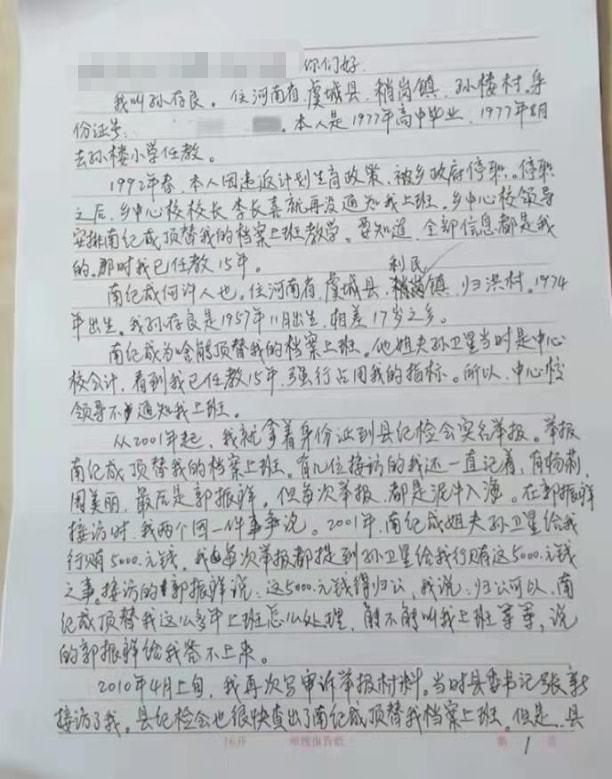 你们好
我叫孙存良。住河南省虞城县稍岗镇孙楼村,身
份证号 。本人是1977年高中毕业,1977年8月
去孙楼小学任教。
1992年春,本人因违返计划生育政策,被乡政府停职。停职
之后,乡中心校校长李长喜就再没通知我上班。乡中心校领导
安排南纪成顶替我的档案上班教学。要知道,全部信息都是我
的,那时我已任教15年。
利民
南纪成何许人也。住河南省虞城县镇归洪村。1974
年出生。我孙存良是1957年11月出生,相差17岁之多。
南纪成为啥能顶替我的档案上班。他姐夫孙卫星当时是中心
校会计,看到我已任教15年,强行占用我的指标。所以,中心校
领导不通知我上班。
从2001年起,我就拿着身份证到县纪检会实名举报。举报
南纪成顶替我的档案上班。有几位接访的我还一直记着,有杨莉,
周美丽,最后是郭振祥,但每次举报,都是泥牛入海。在郭振祥
接访时,我两个因一件事争论。2001年,南纪成姐夫孙卫星给我
行贿5000元钱,我每次举报都提到孙卫星给我行贿这5000元钱
之事。接访的郭振祥说:这5000元钱得归公,我说:归公可以,南
纪成顶替我这么多年上班怎么处理,能不能叫我上班等等,说
的郭振祥给我答不上来。
2010年4月上旬,我再次写申诉举报材料。当时县委书记张
接访了我。县纪检会也很快查出了南纪成顶替我档案上班。但是,县
16开
第 1 页